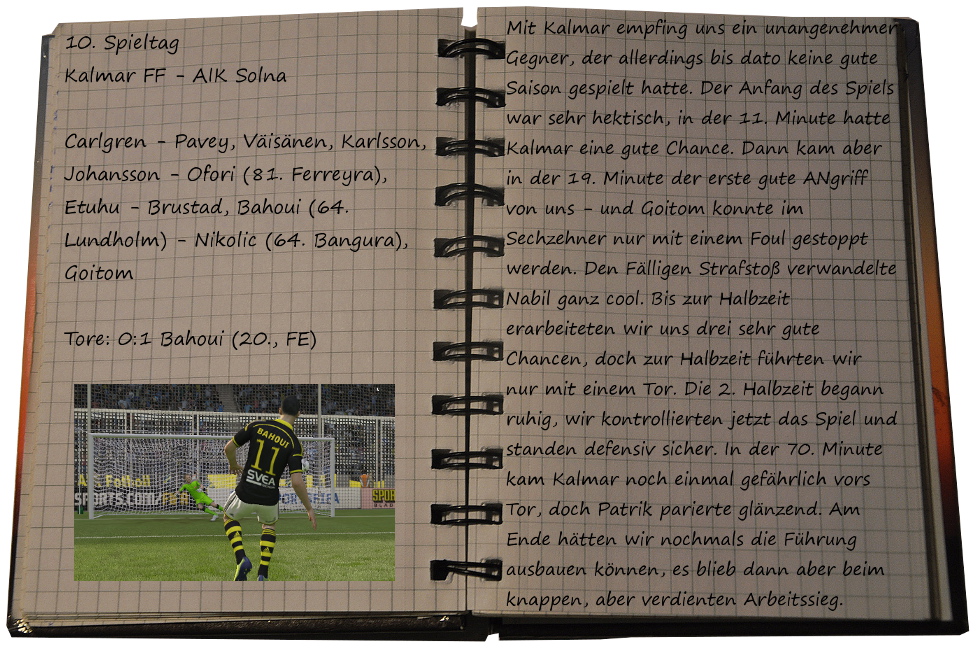 10. Spieltag
Kalmar FF - AIK Solna
Carlgren - Pavey, Väisänen, Karlsson,
Johansson - Ofori (81. Ferreyra),
Etuhu - Brustad, Bahoui (64.
Lundholm) - Nikolic (64. Bangura),
Goitom
Tore: 0:1 Bahoui (20., FE)
BAHOUI
11
SVEA
Mit Kalmar empfing uns ein unangenehmer
Gegner, der allerdings bis dato keine gute
Saison gespielt hatte. Der Anfang des Spiels
war sehr hektisch, in der 11. Minute hatte
Kalmar eine gute Chance. Dann kam aber
in der 19. Minute der erste gute ANgriff
von uns - und Goitom konnte im
Sechzehner nur mit einem Foul gestoppt
werden. Den Fälligen Strafstoß verwandelte
Nabil ganz cool. Bis zur Halbzeit
erarbeiteten wir uns drei sehr gute
Chancen, doch zur Halbzeit führten wir
nur mit einem Tor. Die 2. Halbzeit begann
ruhig, wir kontrollierten jetzt das Spiel und
standen defensiv sicher. In der 70. Minute
kam Kalmar noch einmal gefährlich vors
Tor, doch Patrik parierte glänzend. Am
Ende hätten wir nochmals die Führung
ausbauen können, es blieb dann aber beim
knappen, aber verdienten Arbeitssieg.